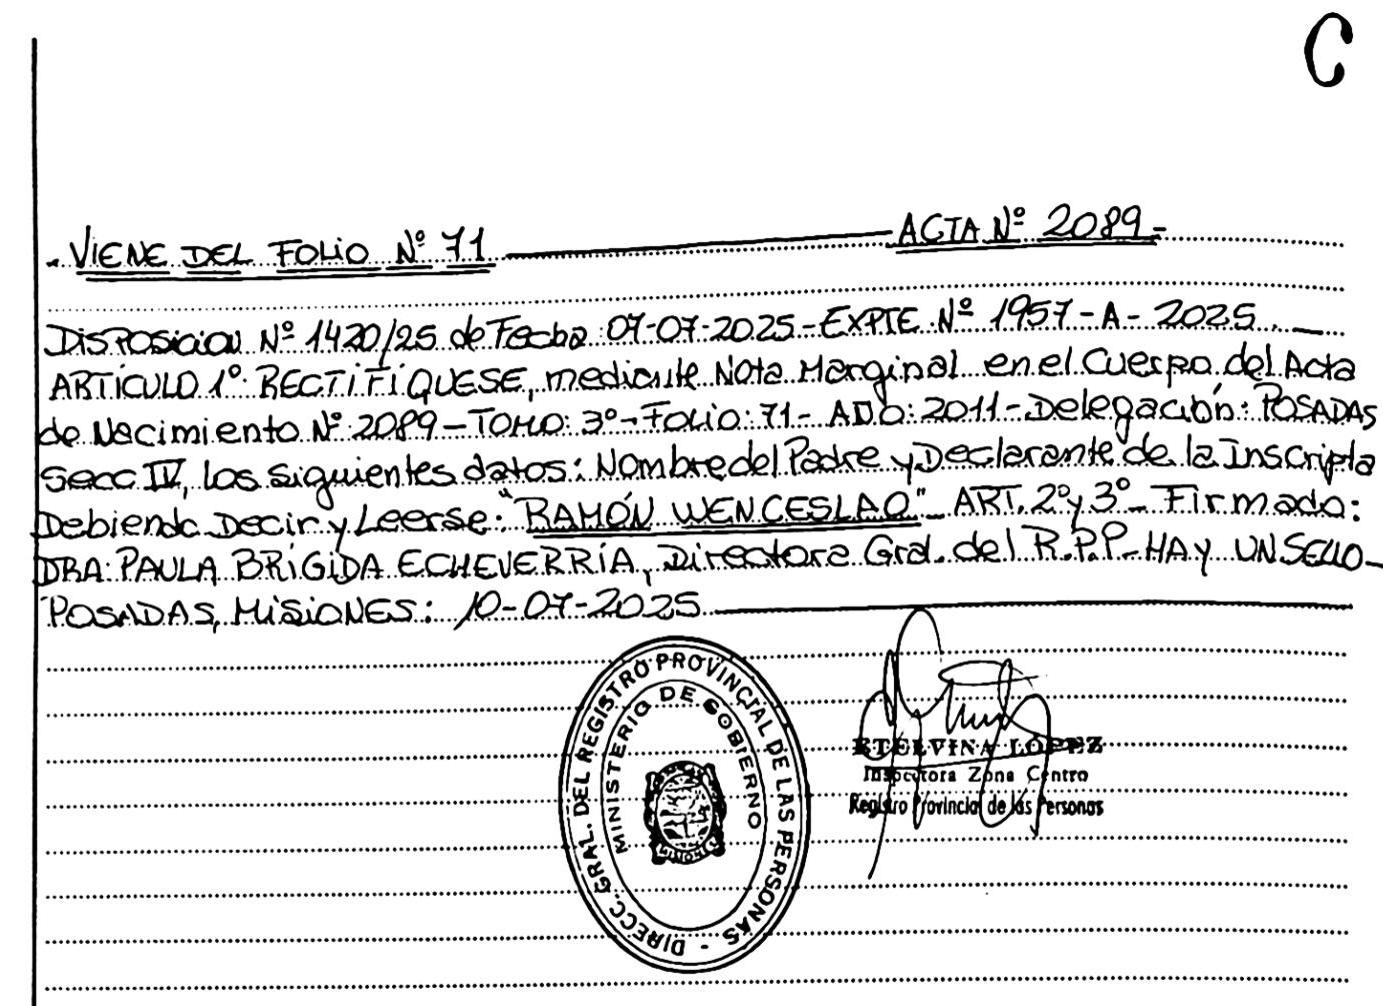 C
- VIENE DEL FOLIO Nº 71 ACTA Nº 2089-
DISPOSICION Nº 1420/25 de Fecha 07-07-2025-EXPTE Nº 1957-A-2025.
ARTICULO 1º: RECTIFIQUESE, mediante Nota Marginal en el Cuerpo del Acta
de Nacimiento Nº 2089-TOMO: 3º-Folio: 71- AÑO: 2011-Delegación: POSADAS
Secc IV, los siguientes datos: Nombre del Padre y Declarante de la Inscripta
Debiendo Decir y Leerse: "RAMÓN WENCESLAO" ART. 2º y 3º- Firmado:
DRA. PAULA BRÍGIDA ECHEVERRÍA, Directora Gral. del R.P.P-HAY UN SELLO-
POSADAS, MISIONES: 10-07-2025
DIRECC. GRAL. DEL REGISTRO PROVINCIAL DE LAS PERSONAS -
MINISTERIO DE GOBIERNO
MISIONES
ETELVINA LOPEZ
Inspectora Zona Centro
Registro Provincial de las Personas